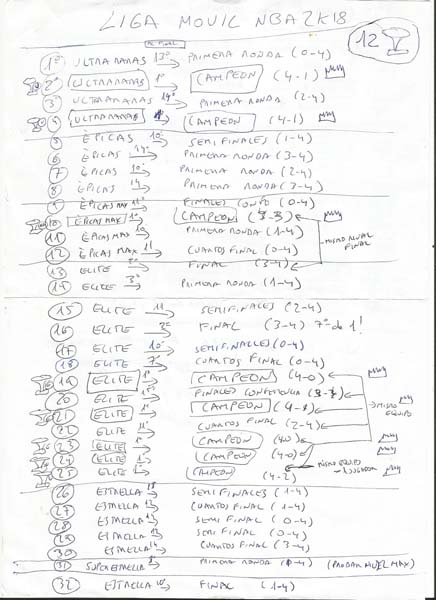 LIGA MOVIL NBA2K18
12
1º ULTRARARAS 13º PRIMERA RONDA (0-4)
2º ULTRARARAS 1º CAMPEON (4-1)
3º ULTRARARAS 14º PRIMERA RONDA (2-4)
ULTRARARAS CAMPEON (4-1)
5 ÈPICAS 10º SEMIFINALES (1-4)
6 ÈPICAS PRIMERA RONDA (3-4)
7 ÈPICAS 10º PRIMERA RONDA (2-4)
8 ÈPICAS 14 PRIMERA RONDA (3-4)
ÈPICAS MAX FINALES (0-4)
10 ÈPICAS MAX 1º CAMPEON
11 ÈPICAS MAX PRIMERA RONDA (1-4)
MISMO RIVAL FINAL
12 ÈPICAS MAX 11 CUARTOS FINAL (0-4)
13 ELITE FINAL (3-4)
14 ELITE 3º PRIMERA RONDA (1-4)
15 ELITE 11 SEMIFINALES (2-4)
16 ELITE 2º FINAL (3-4) 7º de 1!
17 ELITE 10º SEMIFINALES (0-4)
18 ELITE 7º CUARTOS FINAL (0-4)
19 ELITE 1º CAMPEON (4-0)
20 ELITE 1º FINALES CONFERENCIA
21 ELITE 1º CAMPEON
MISMO EQUIPO
22 ELITE 1º CUARTOS FINAL (2-4)
23 ELITE 1º CAMPEON (4-0)
24 ELITE 1º CAMPEON (4-0)
MISMO EQUIPO
25 ELITE 1º CAMPEON (4-2)
26 ESTRELLA 13 SEMIFINALES (1-4)
27 ESTRELLA 12 CUARTOS FINAL (1-4)
28 ESTRELLA SEMI FINAL (0-4)
29 ESTRELLA 13 SEMI FINAL (0-4)
30 ESTRELLA 14 CUARTOS FINAL (3-4)
31 SUPER ESTRELLA PRIMERA RONDA (PROBAR NIVEL MAX)
32 ESTRELLA 10º FINAL (1-4)